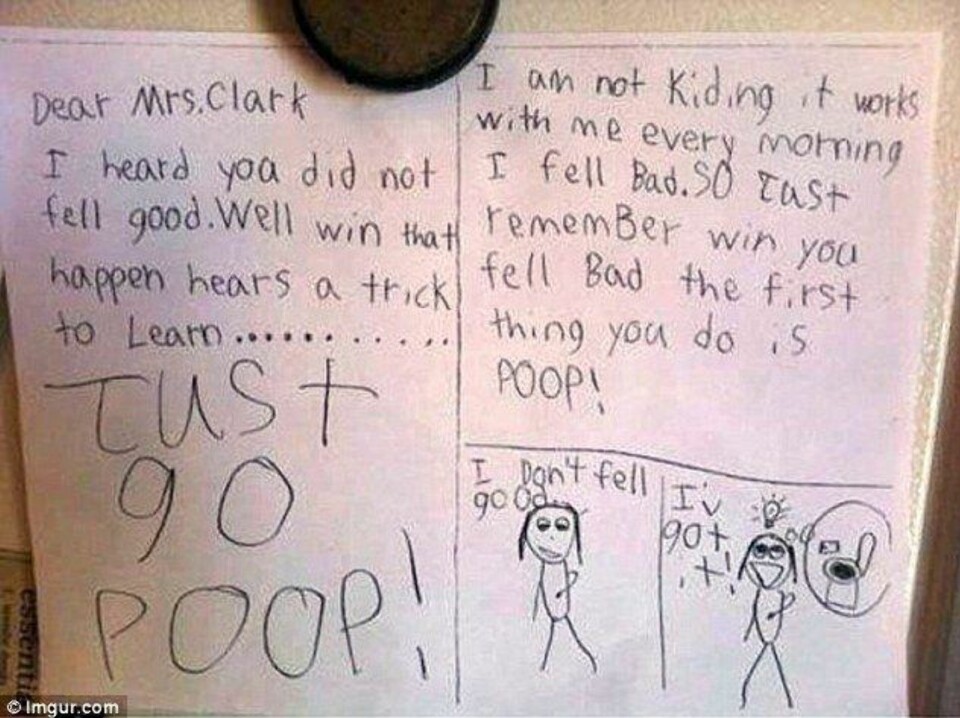 Dear Mrs.Clark
I heard you did not
fell good.Well win that
happen hears a trick
to Learn...........
Just
go
POOP!
I am not Kiding it works
with me every morning
I fell Bad.So Just
rememBer win you
fell Bad the first
thing you do is
POOP!
I Don't fell
good..
I'v
got
it!
essenti
© Imgur.com